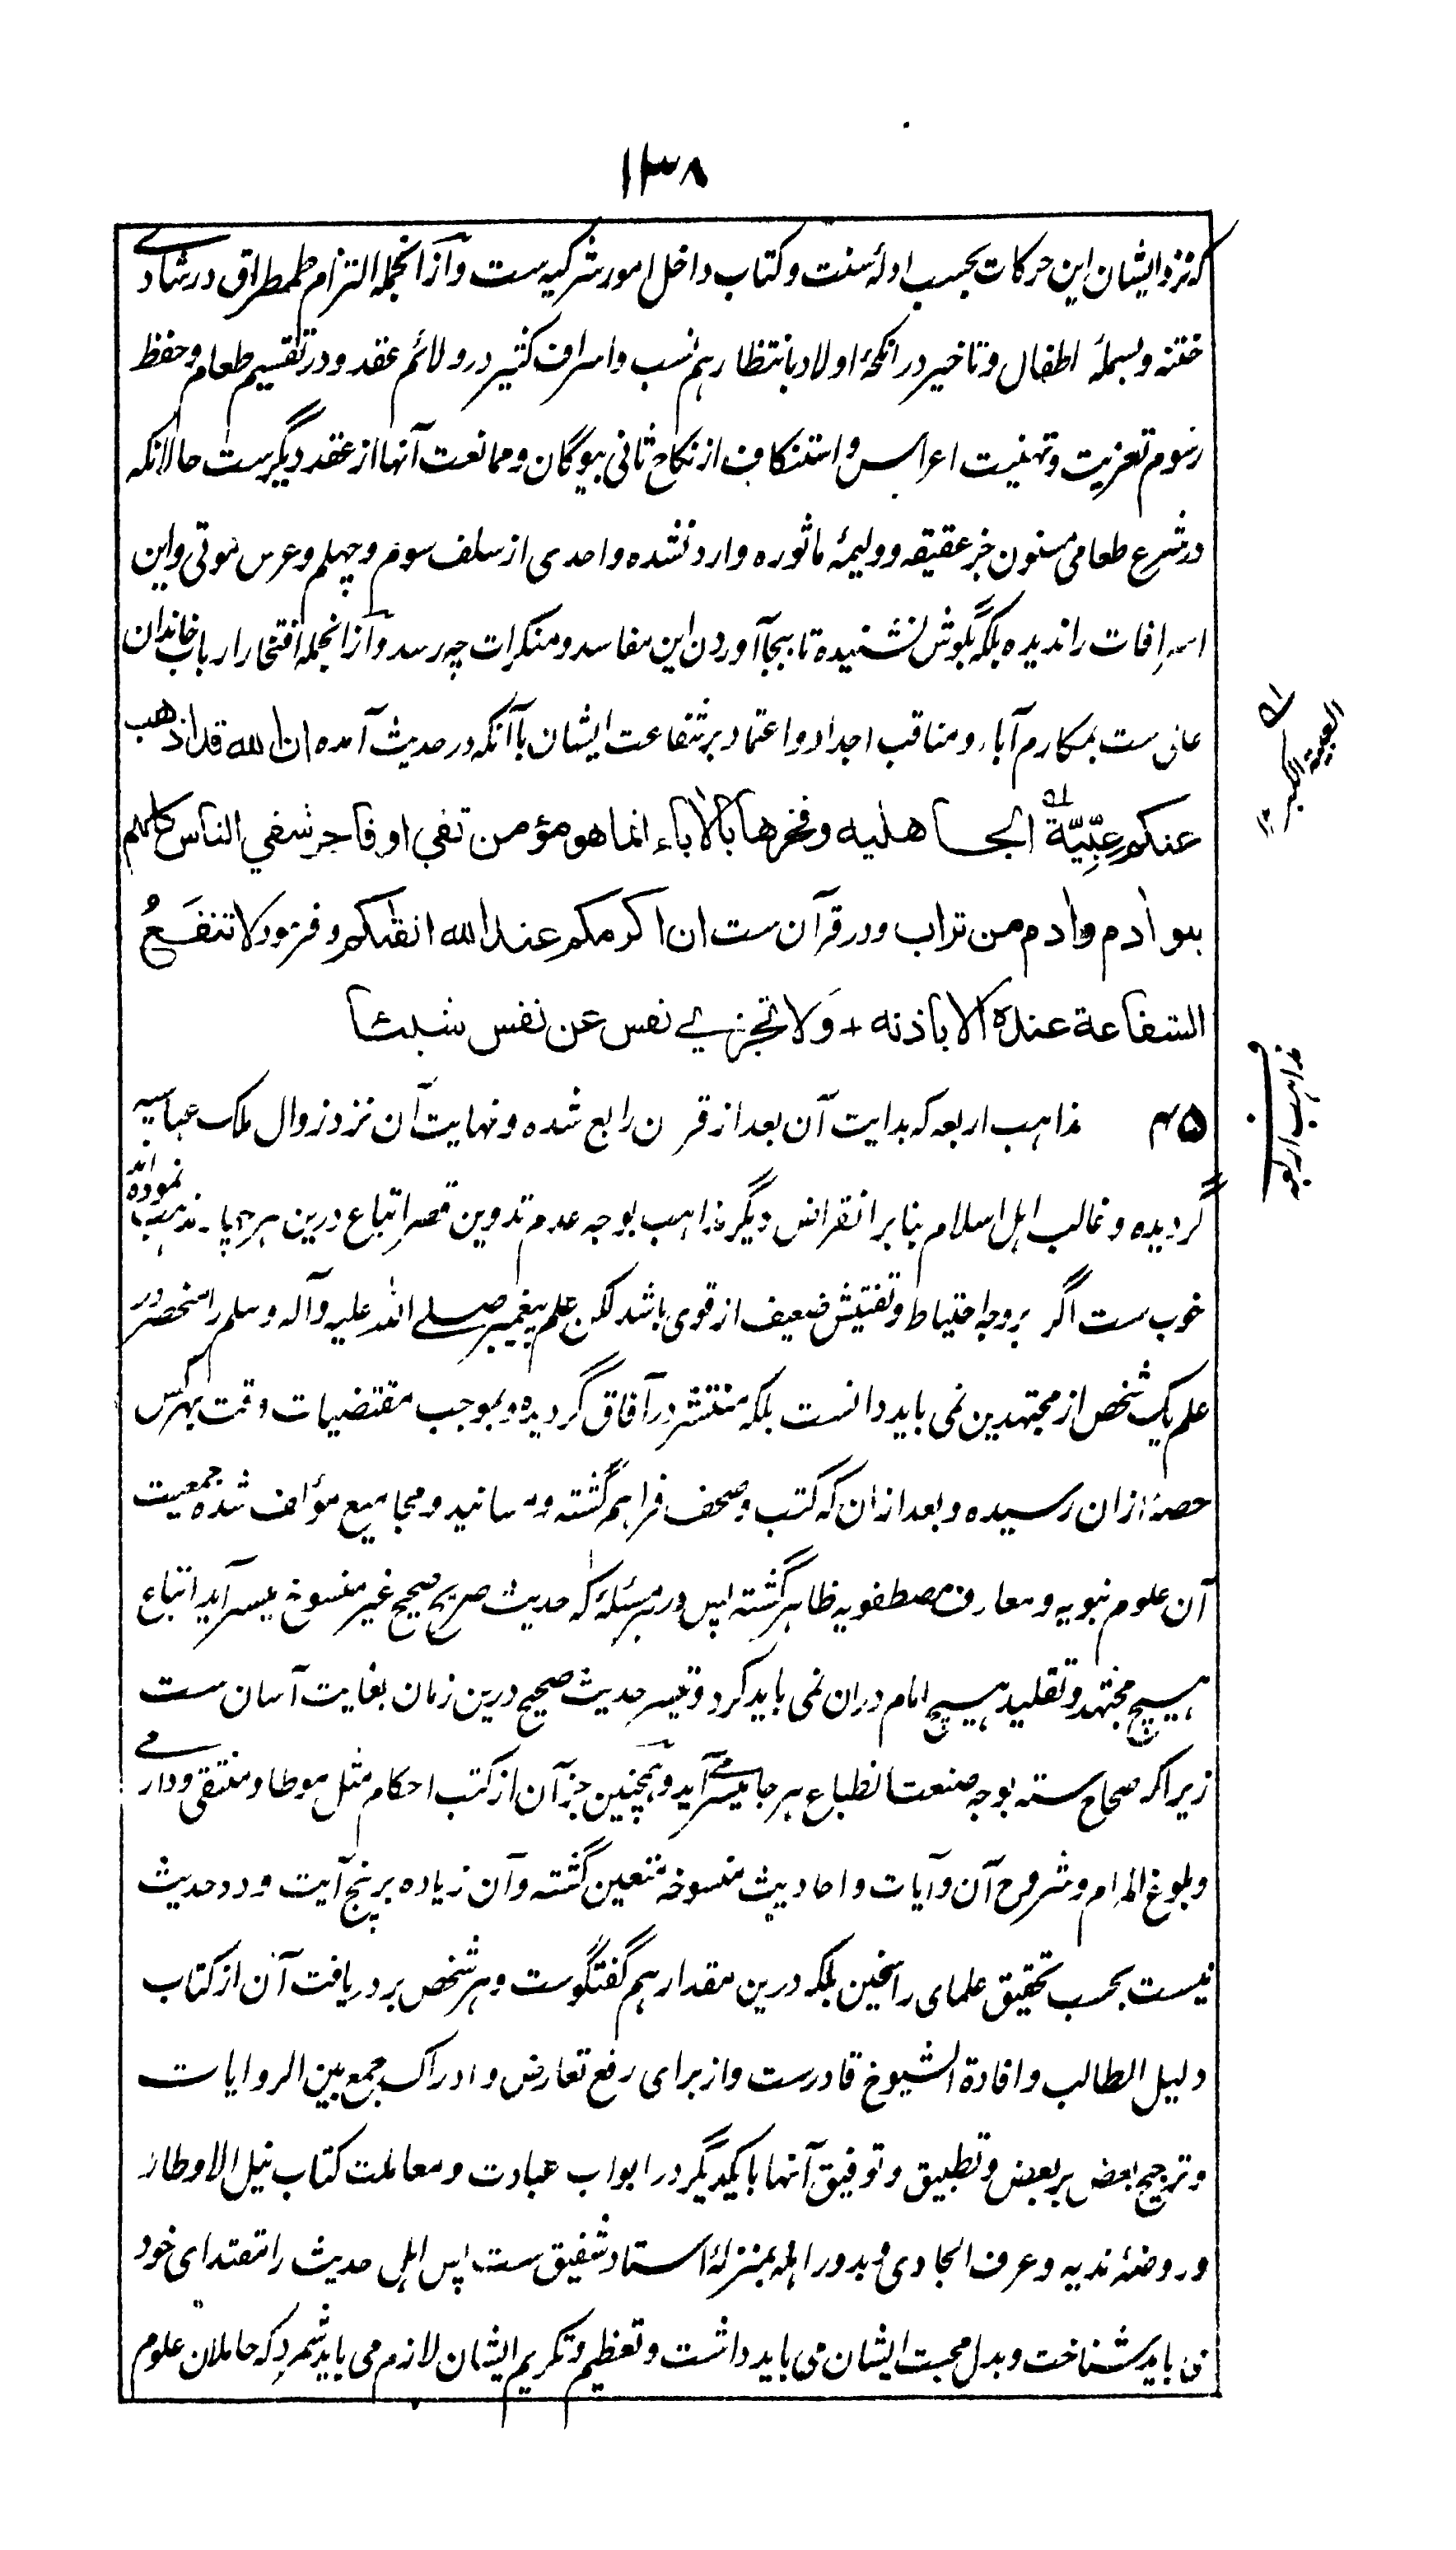 ۱۳۸
که نزد ایشان این حرکات بحسب ادلهٔ سنت و کتاب داخل امور شرکیه ست و ازانجمله التزام طمطراق در شادے
ختنه و بسملهٔ اطفال و تاخیر در انکحهٔ اولاد بانتظار هم نسب و اسراف کثیر در ولائم عقد و در تقسیم طعام و حفظ
رسوم تعزیت و تهنیت اعراس و استنکاف از نکاح ثانی بیوگان و ممانعت آنها از عقد دیگرست حالانکه
در شرع طعامی مسنون جز عقیقه و ولیمهٔ ماثوره وارد نشده و احدی از سلف سوم و چهلم و عرس موتی و این
اسرافات را ندیده بلکه بگوش نشنیده تا ببجا آوردن این مفاسد و منکرات چه رسد و ازانجمله افتخار ارباب خاندان
عالی ست بمکارم آباء و مناقب اجداد و اعتماد بر شفاعت ایشان باآنکه در حدیث آمده ان الله قد اذهب
عنکم عِبِّیَّة الجاهلیه و فخرها بالاٰباء انما هو مؤمن تقی او فاجر شقی الناس کلهم
بنو اٰدم واٰدم من تراب و در قرآن ست ان اکرمکم عند الله اتقٰکم و فرمود لا تنفَعُ
الشفاعة عنده الا باذنه + وَلا تجزی نفس عن نفس شیئا
۴۵ مذاهب اربعه که بدایت آن بعد از قرن رابع شده و نهایت آن نزد زوال ملک عباسیه
گردیده و غالب اهل اسلام بنا بر انقراض دیگر مذاهب بوجه عدم تدوین قصر اتباع درین هر چار مذهب نموده اند
خوب ست اگر بروجه احتیاط و تفتیش ضعیف از قوی باشد لکن علم پیغمبر صلے الله علیه و آله و سلم را منحصر در
علم یک شخص از مجتهدین نمی باید دانست بلکه منتشر در آفاق گردیده و بموجب مقتضیات وقت بهر کس
حصهٔ ازان رسیده و بعد ازان که کتب و صحف فراهم گشته و مسانید و مجامیع مؤلف شده جمعیت
آن علوم نبویه و معارف مصطفویه ظاهر گشته پس در هر مسئله که حدیث صریح صحیح غیر منسوخ میسر آید اتباع
هیچ مجتهد و تقلید هیچ امام دران نمی باید کرد و تیسر حدیث صحیح درین زمان بغایت آسان ست
زیراکه صحاح سته بوجه صنعت انطباع هر جا میسر مے آید و همچنین جز آن از کتب احکام مثل موطا و منتقی و دارمے
و بلوغ المرام و شروح آن و آیات و احادیث منسوخه متعین گشته و آن زیاده بر پنج آیت و ده حدیث
نیست بحسب تحقیق علمای راسخین بلکه درین مقدار هم گفتگوست و هر شخص بر دریافت آن از کتاب
دلیل الطالب و افادة الشیوخ قادرست و از برای رفع تعارض و ادراک جمع بین الروایات
و ترجیح بعض بر بعض و تطبیق و توفیق آنها بایکدیگر در ابواب عبادت و معاملت کتاب نیل الاوطار
و روضهٔ ندیه و عرف الجادی و بدور اهله بمنزلهٔ استاد شفیق ست پس اهل حدیث را مقتدای خود
می باید شناخت و بدل محبت ایشان می باید داشت و تعظیم و تکریم ایشان لازم می باید شمرد که حاملان علوم
العبیة الکبر ۱۲
مذاهب اربعه